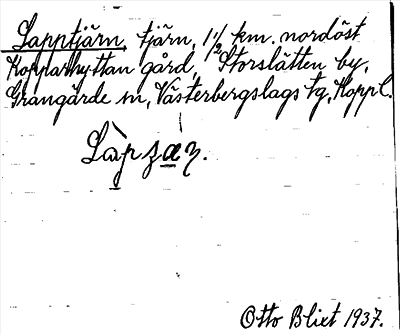 Lapptjärn, tjärn, 1 1/2 km. nordöst
Kopparhyttan gård, Storslätten by,
Grangärde sn, Västerbergslags tg, Koppl.
Otto Blixt 1937.